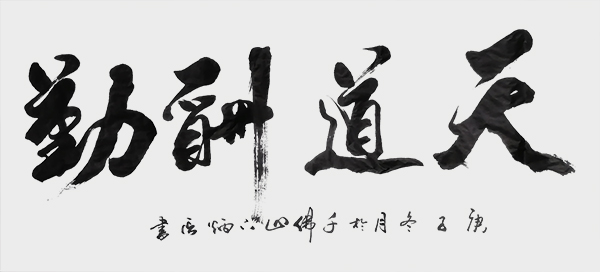 天道酬勤
庚子冬月於千佛山下炳書